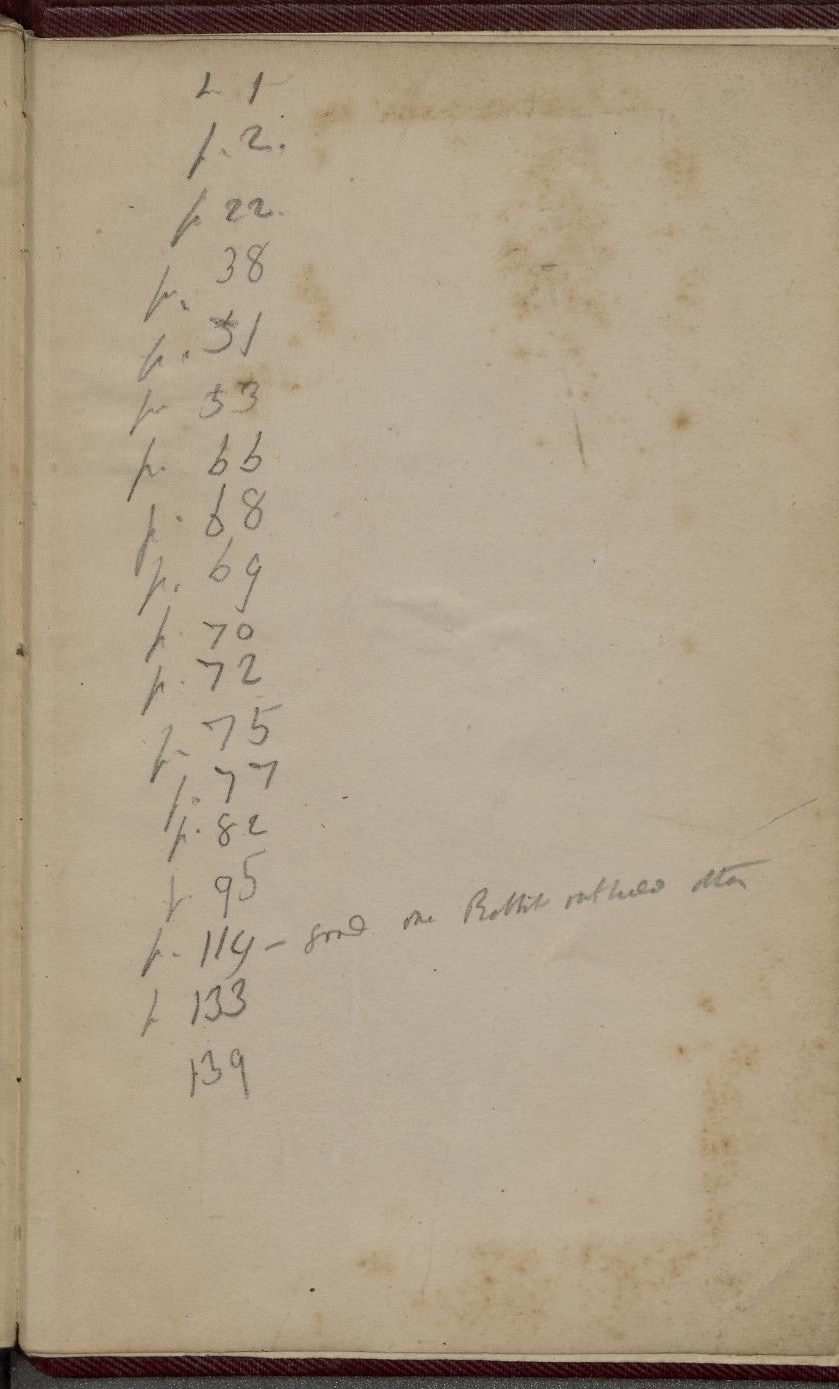 1
p. 2.
p 22.
p. 38
p. 51
p 53
p. 66
p. 68
p. 69
p. 70
p. 72
p. 75
p. 77
p. 82
p 95
p. 119 - good one Rabbit
p 133
139